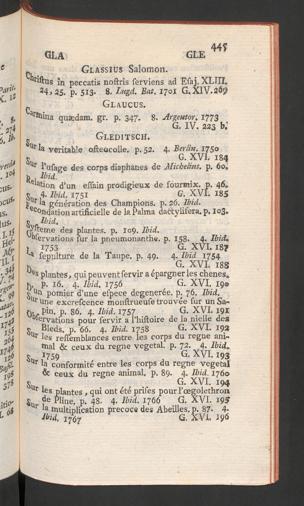 445
GLA GLE
GLASSIUS Salomon.
Christus in peccatis nostris serviens ad Esaj. XLIII.
24, 25. p. 513. 8. Lugd. Bat. 1701 G. XIV. 269
GLAUCUS.
Carmina quædam. gr. p. 347. 8. Argentor. 1773
G. IV. 223 b.
GLEDITSCH.
Sur la veritable osteocolle. p. 52. 4. Berlin. 1750
G. XVI. 184
Sur l'usage des corps diaphanes de Michelius. p. 60.
Ibid.
Relation d'un essain prodigieux de fourmix. p. 46.
4. Ibid. 1751 G. XVI. 185
Sur la génération des Champions. p. 26. Ibid.
Fecondation artificielle de la Palma dactylifera. p. 103.
Ibid.
Systeme des plantes. p. 109. Ibid.
Observations sur la pneumonanthe. p. 158. 4. Ibid.
1753 G. XVI. 187
La sepulture de la Taupe. p. 49. 4. Ibid 1754
G. XVI. 188
Des plantes, qui peuvent servir a épargner les chenes.
p. 16. 4. Ibid. 1756 G. XVI. 190
D'un pomier d'une espece degenerée. p. 76. Ibid.
Sur une excrescence monstrueuse trouvée sur un Sa-
pin. p. 86. 4. Ibid. 1757 G. XVI. 191
Observations pour servir a l'histoire de la nielle des
Bleds. p. 66. 4. Ibid. 1758 G. XVI. 192
Sur les ressemblances entre les corps du regne ani-
mal & ceux du regne vegetal. p. 72. 4. Ibid.
1759 G. XVI. 193
Sur la conformité entre les corps du regne vegetal
& ceux du regne animal. p. 89. 4. Ibid. 1760
G. XVI. 194
Sur les plantes, qui ont été prises pour l'œgolethron
de Pline. p. 48. 4. Ibid. 1766 G. XVI. 195
Sur la multiplication precoce des Abeilles. p. 87. 4.
Ibid. 1767 G. XVI. 196